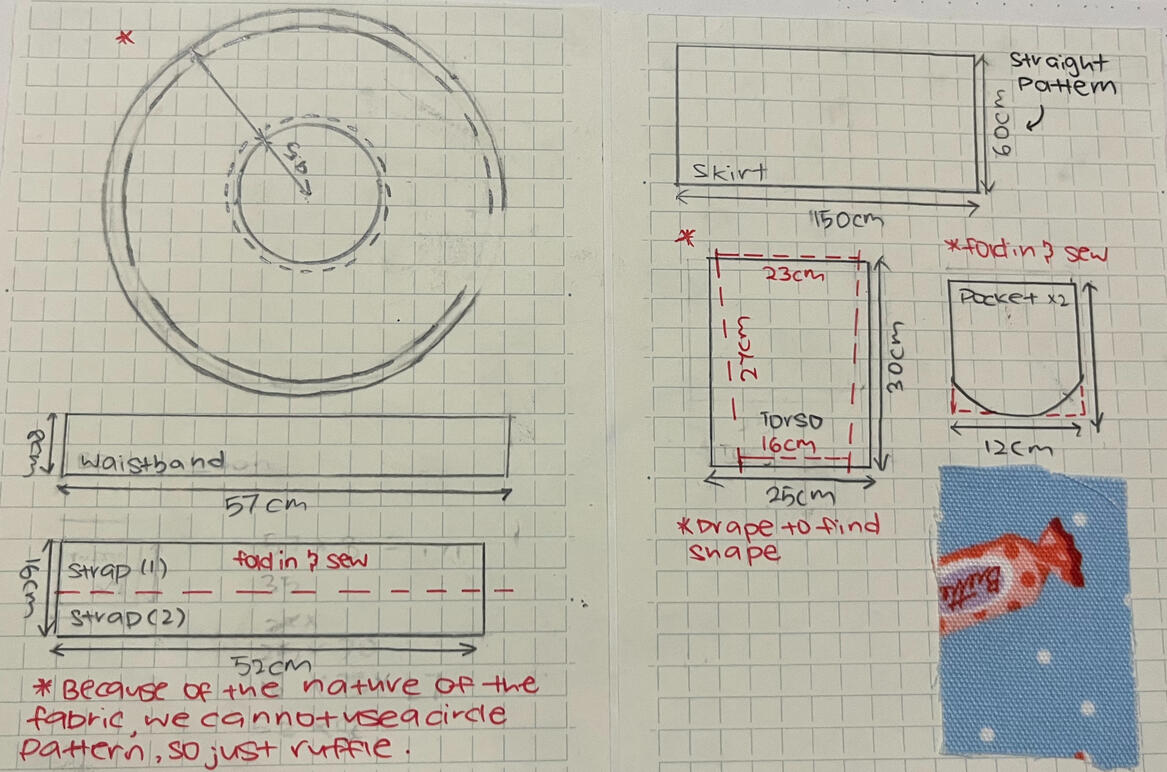 *
8cm
waistband
57cm
16cm
Strap (1)
fold in & sew
Strap (2)
52cm
* Because of the nature of the
fabric, we cannot use a circle
pattern, so just ruffle.
Straight
Pattern
60cm
Skirt
150cm
*
23cm
27cm
30cm
Torso
16cm
25cm
* Drape to find
shape
* fold in & sew
Pocket x2
12cm